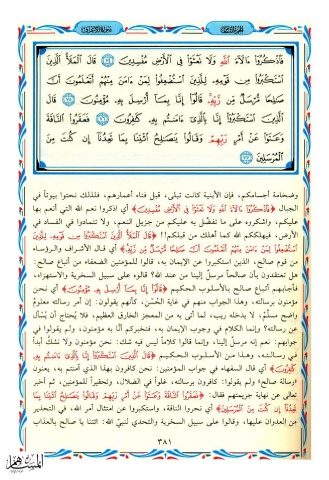 فَاذْكُرُوٓا۟ ءَالَآءَ ٱللَّهِ وَلَا تَعْثَوْا۟ فِى ٱلْأَرْضِ مُفْسِدِينَ ۝ قَالَ ٱلْمَلَأُ ٱلَّذِينَ
ٱسْتَكْبَرُوا۟ مِن قَوْمِهِۦ لِلَّذِينَ ٱسْتُضْعِفُوا۟ لِمَنْ ءَامَنَ مِنْهُمْ أَتَعْلَمُونَ أَنَّ
صَٰلِحًا مُّرْسَلٌ مِّن رَّبِّهِۦ قَالُوٓا۟ إِنَّا بِمَآ أُرْسِلَ بِهِۦ مُؤْمِنُونَ ۝ قَالَ
ٱلَّذِينَ ٱسْتَكْبَرُوٓا۟ إِنَّا بِٱلَّذِىٓ ءَامَنتُم بِهِۦ كَٰفِرُونَ ۝ فَعَقَرُوا۟ ٱلنَّاقَةَ
وَعَتَوْا۟ عَنْ أَمْرِ رَبِّهِمْ وَقَالُوا۟ يَٰصَٰلِحُ ٱئْتِنَا بِمَا تَعِدُنَآ إِن كُنتَ مِنَ
ٱلْمُرْسَلِينَ ۝
وضخامة أجسامكم، فإن الأبنية كانت تبلى، قبل فناء أعمارهم، فلذلك نحتوا بيوتاً في
الجبال ﴿فَاذْكُرُوا آلَاءَ اللَّهِ وَلَا تَعْثَوْا فِي الْأَرْضِ مُفْسِدِينَ﴾ أي اذكروا نعم الله التي أنعم بها
عليكم، واشكروه على ما تفضل به عليكم من جزيل النعم، ولا تتمادوا في الفساد في
الأرض، فيهلككم الله كما أهلك من قبلكم!! ﴿قَالَ الْمَلَأُ الَّذِينَ اسْتَكْبَرُوا مِن قَوْمِهِ لِلَّذِينَ
اسْتُضْعِفُوا لِمَنْ آمَنَ مِنْهُمْ أَتَعْلَمُونَ أَنَّ صَالِحًا مُّرْسَلٌ مِّن رَّبِّهِ﴾ أي قال الأشراف والرؤساء
من قوم صالح، الذين استكبروا عن الإيمان به، قالوا للمؤمنين الضعفاء من أتباع صالح:
هل تعتقدون بأن صالحاً مرسل إلينا من عند الله؟ قالوه على سبيل السخرية والاستهزاء،
فأجابهم أتباع صالح بالأسلوب الحكيم ﴿قَالُوا إِنَّا بِمَا أُرْسِلَ بِهِ مُؤْمِنُونَ﴾ أي نحن
مؤمنون برسالته، وهذا الجواب منهم في غاية الحُسن، كأنهم يقولون: إن أمر رسالته معلومٌ
واضح مسلَّم، لا يدخله ريب، لما أتى به من المعجز الخارق العظيم، فلا يحتاج أن يُسأل
عن رسالته؟ وإنما الكلام في وجوب الإيمان به، فنخبركم أنَّا به مؤمنون، ولم يقولوا في
جوابهم: نعم إنه مرسلٌ إلينا، وإنما قالوا كلاماً ليس فيه شك: نحن مؤمنون ولا نشكُّ أبداً
في رسالته، وهذا من الأسلوب الحكيم ﴿قَالَ الَّذِينَ اسْتَكْبَرُوا إِنَّا بِالَّذِي آمَنتُم بِهِ
كَافِرُونَ﴾ أي قال السفهاء في جواب المؤمنين: نحن كافرون بهذا الذي آمنتم به، يعنون
(رسالة صالح) ولم يقولوا: كافرون برسالته، غلواً في الضلال، وتحقيراً للمؤمنين، ثم أخبر
تعالى عن نهاية جريمتهم فقال: ﴿فَعَقَرُوا النَّاقَةَ وَعَتَوْا عَنْ أَمْرِ رَبِّهِمْ وَقَالُوا يَا صَالِحُ ائْتِنَا بِمَا
تَعِدُنَا إِن كُنتَ مِنَ الْمُرْسَلِينَ﴾ أي نحروا الناقة، واستكبروا عن امتثال أمر الله، في التحذير
من العدوان عليها، وقالوا على سبيل السخرية والتحدي لنبي الله: ائتنا يا صالح بالعذاب
٣٨١